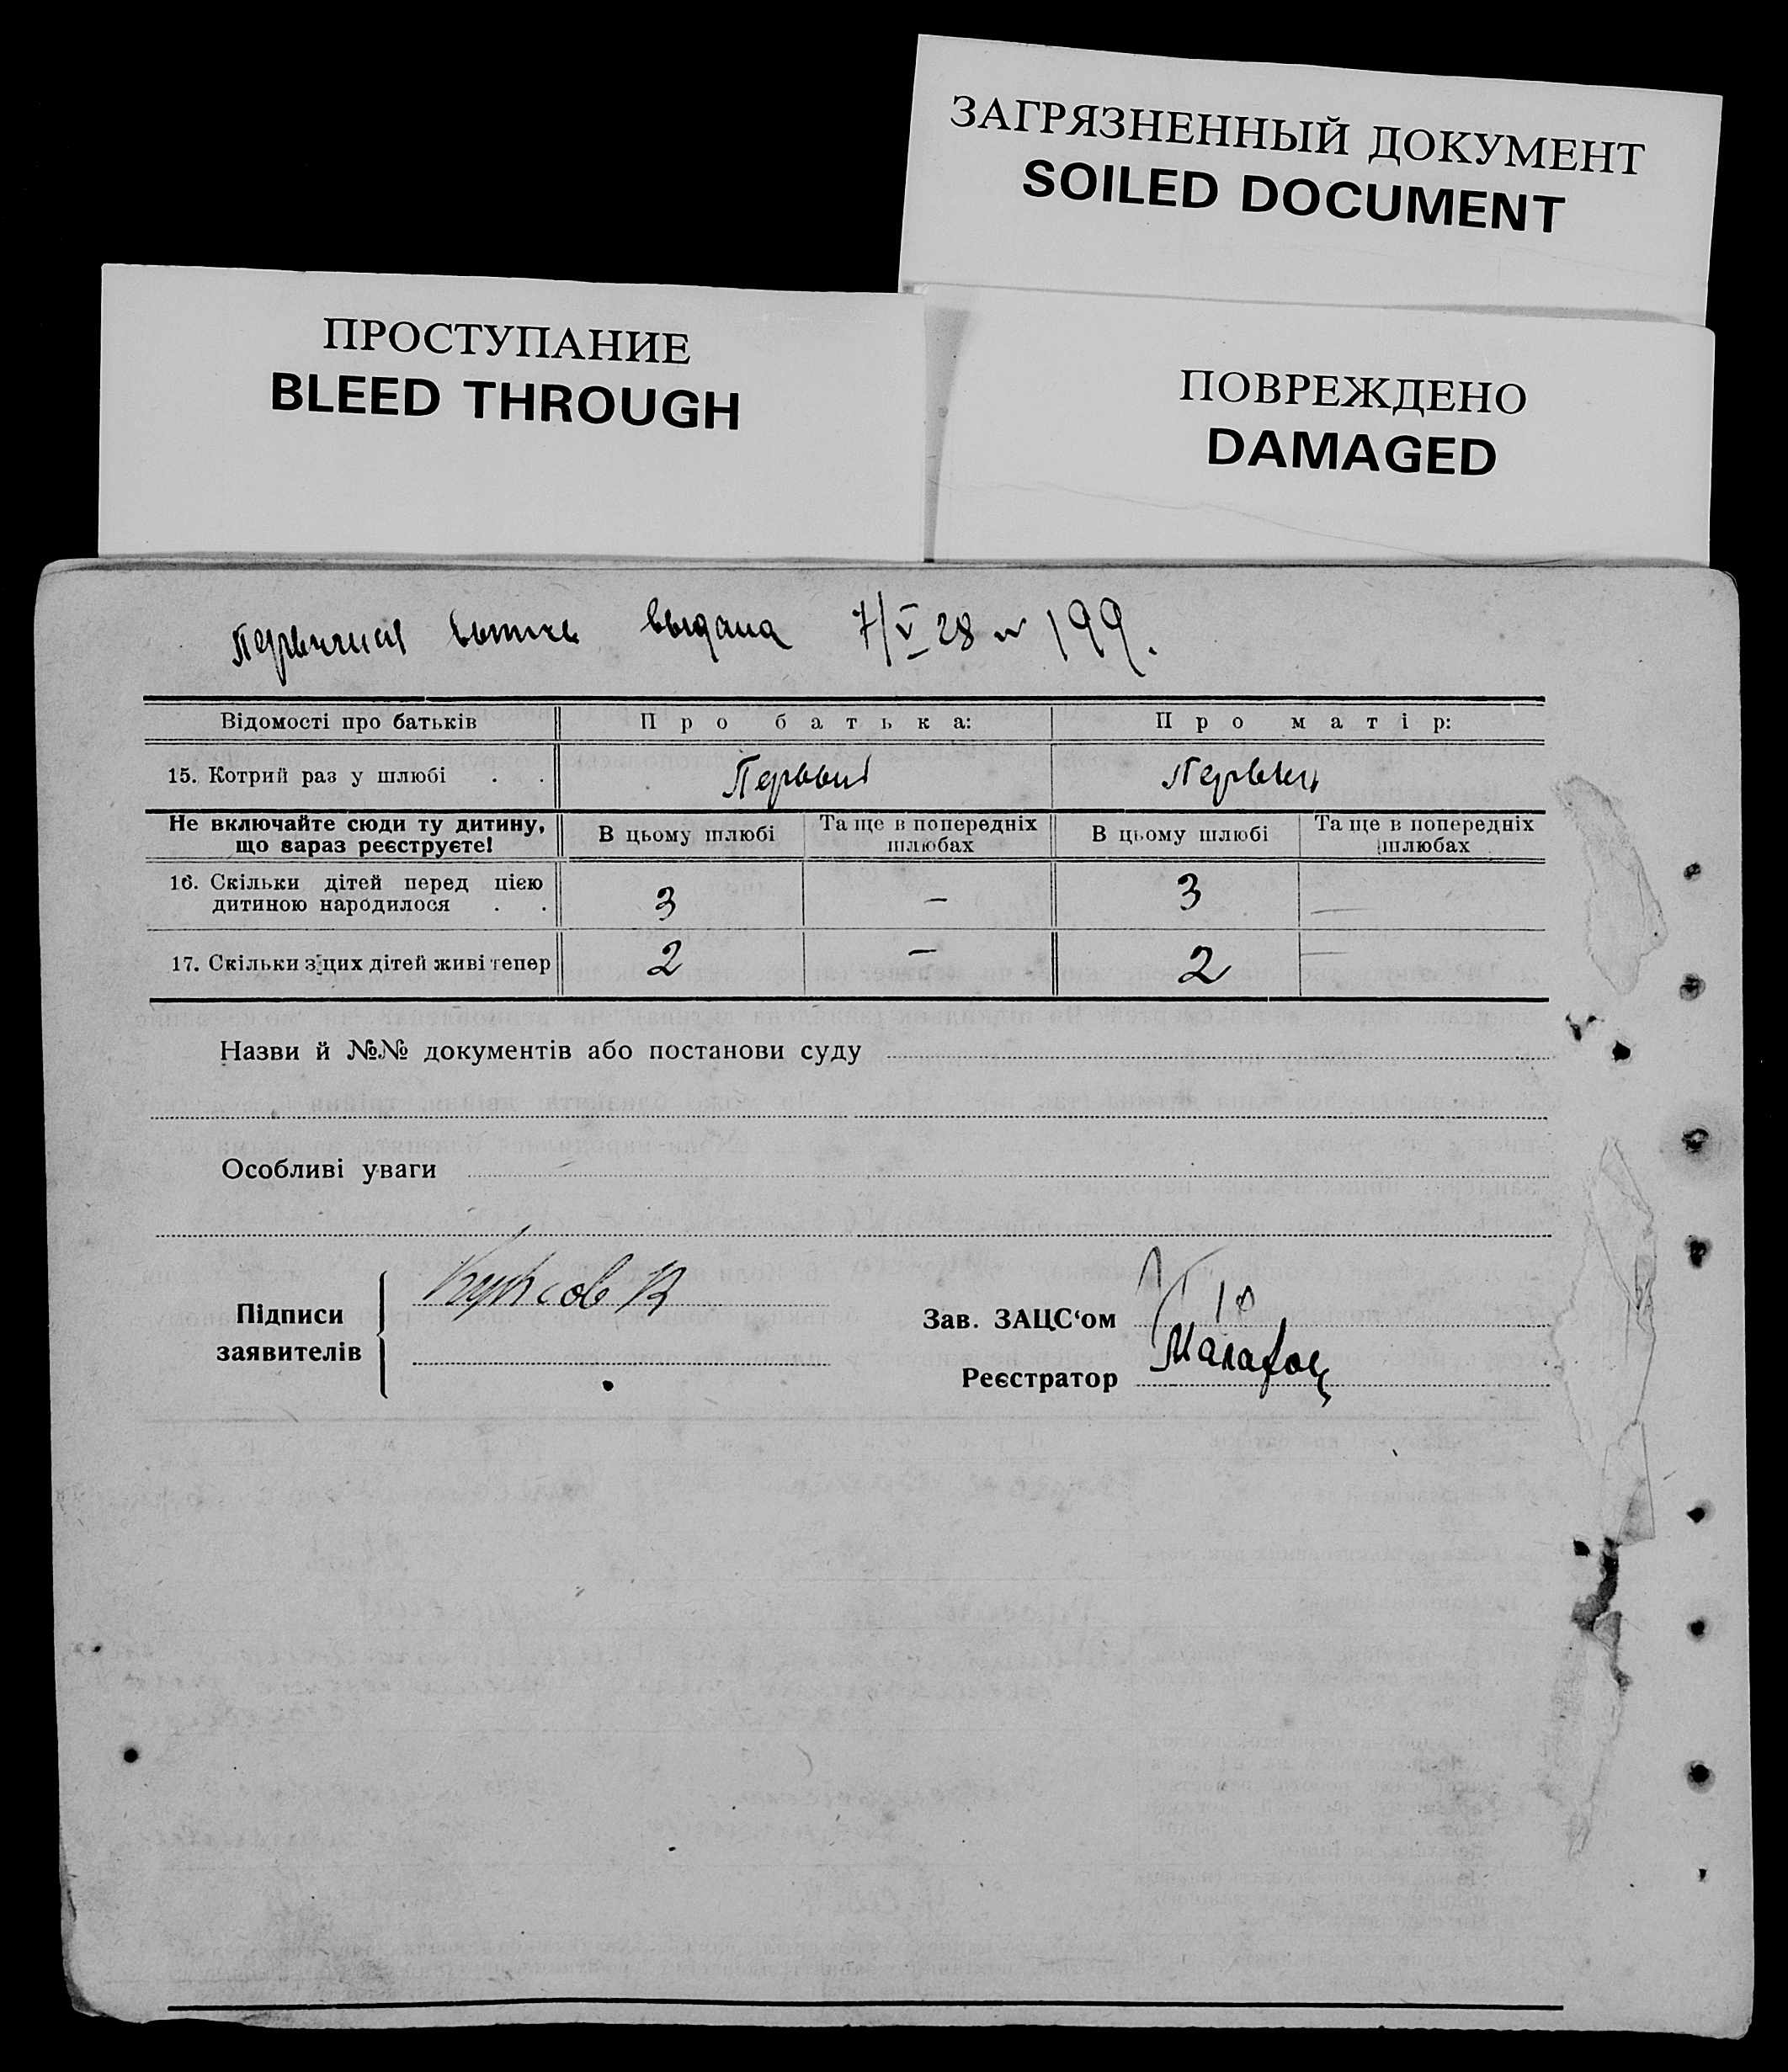 ЗАГРЯЗНЕННЫЙ ДОКУМЕНТ
SOILED DOCUMENT
ПРОСТУПАНИЕ
BLEED THROUGH
ПОВРЕЖДЕНО
DAMAGED
выдана 7/V 28 199.
Відомості про батьків
П р о б а т ь к а:
П р о м а т і р:
15. Котрий раз у шлюбі . .
Первый
Первый
Не включайте сюди ту дитину,
що вараз реєструєте!
В цьому шлюбі
Та ще в попередніх
шлюбах
В цьому шлюбі
Та ще в попередніх
шлюбах
16. Скільки дітей перед цією
дитиною народилося . .
3
—
3
—
17. Скільки з цих дітей живі тепер
2
—
2
—
Назви й №№ документів або постанови суду
Особливі уваги
Підписи
заявителів
Зав. ЗАЦС‘ом
Реєстратор